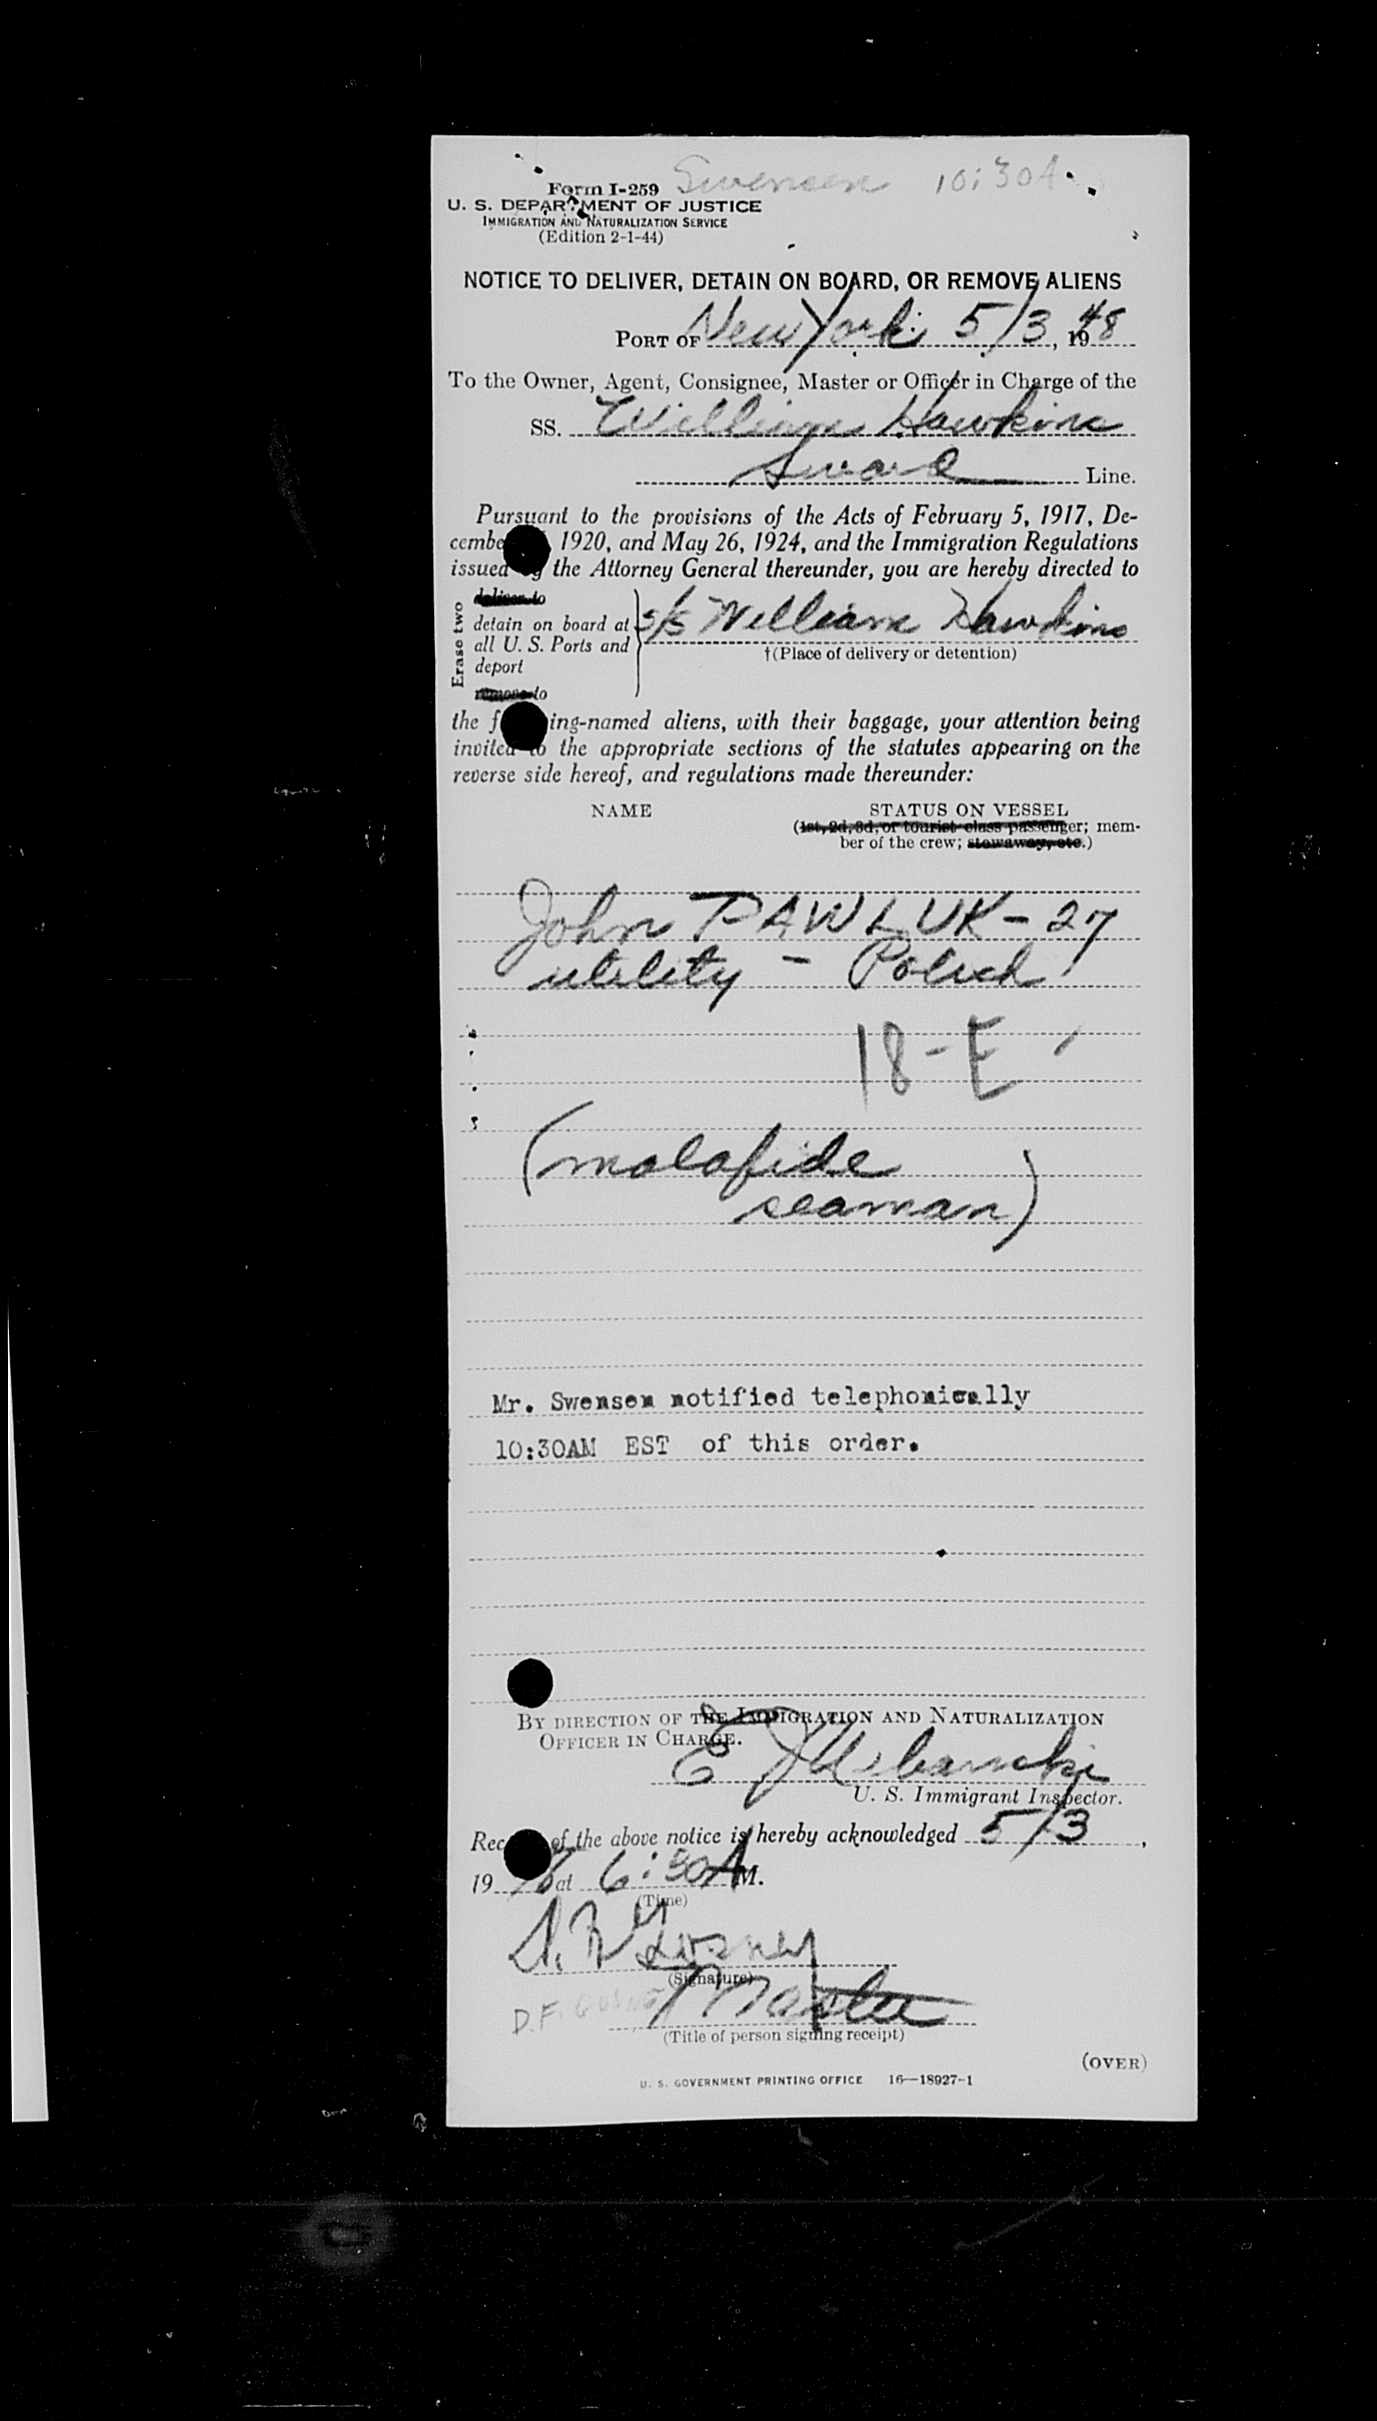 Swensen 10:30A.
Form I-259
U. S. DEPARTMENT OF JUSTICE
IMMIGRATION AND NATURALIZATION SERVICE
(Edition 2-1-44)
NOTICE TO DELIVER, DETAIN ON BOARD, OR REMOVE ALIENS
PORT OF New York 5/3, 1948
To the Owner, Agent, Consignee, Master or Officer in Charge of the
SS. William Hawkins
Line.
Pursuant to the provisions of the Acts of February 5, 1917, De-
cembe 1920, and May 26, 1924, and the Immigration Regulations
issued by the Attorney General thereunder, you are hereby directed to
Erase two
deliver to
detain on board at
all U. S. Ports and
deport
remove to
s/s William Hawkins
†(Place of delivery or detention)
the f ing-named aliens, with their baggage, your attention being
invited to the appropriate sections of the statutes appearing on the
reverse side hereof, and regulations made thereunder:
NAME STATUS ON VESSEL
(1st, 2d, 3d, or tourist class passenger; mem-
ber of the crew; stowaway, etc.)
John PAWLUK - 27
utility - Polish
18-E
(malafide
seaman)
Mr. Swensen notified telephonically
10:30AM EST of this order.
BY DIRECTION OF THE IMMIGRATION AND NATURALIZATION
OFFICER IN CHARGE.
E J Urbanski
U. S. Immigrant Inspector.
Rec of the above notice is hereby acknowledged 5/3,
19 at 6:30 A M.
(Time)
(Signature)
D.F. Master
(Title of person signing receipt)
(OVER)
U. S. GOVERNMENT PRINTING OFFICE 16—18927-1